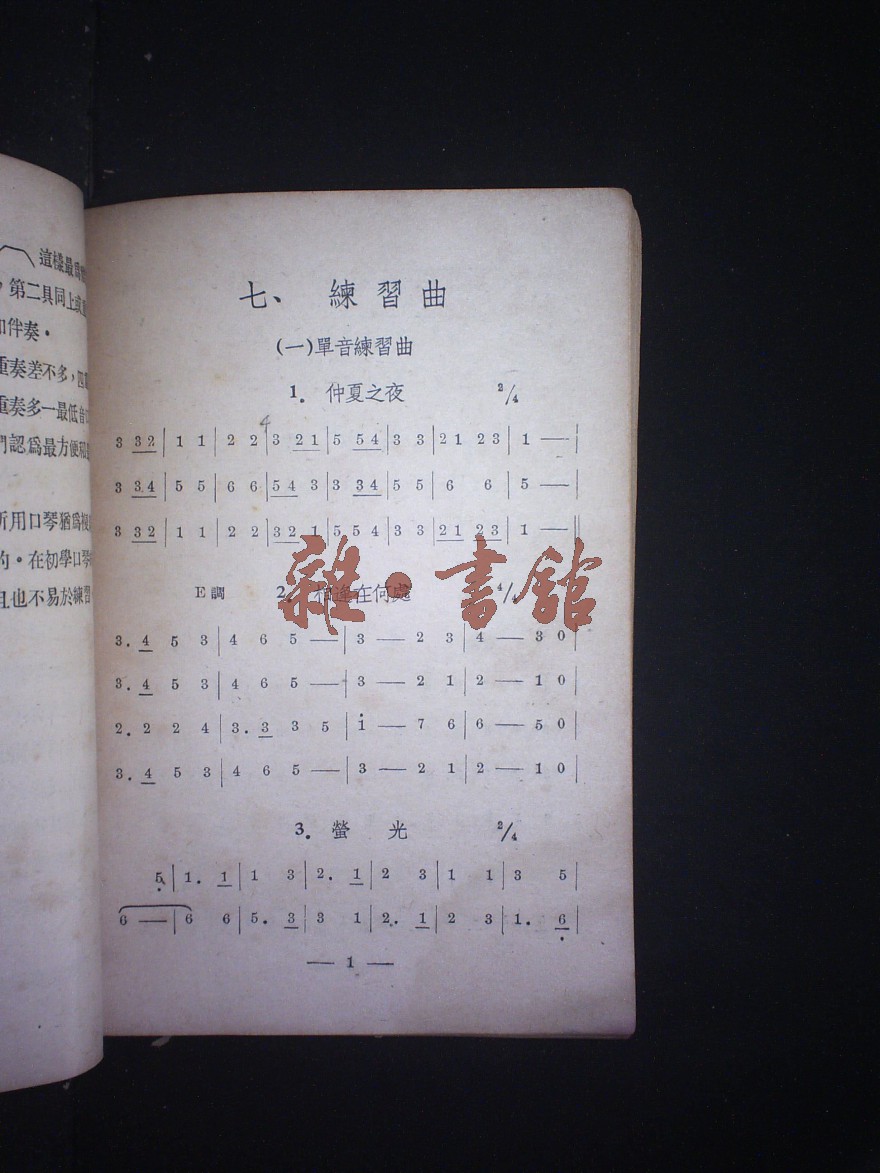 這樣最爲
，第二具同上或
和伴奏・
重奏差不多，四
重奏多一最低音
門認爲最方便
所用口琴猶爲
的・在初學口琴
且也不易於練習
七、練習曲
(一)單音練習曲
1. 仲夏之夜 2/4
4
3 32 | 1 1 | 2 2 | 3 21 | 5 54 | 3 3 | 21 23 | 1 — |
3 34 | 5 5 | 6 6 | 54 3 | 3 34 | 5 5 | 6 6 | 5 — |
3 32 | 1 1 | 2 2 | 32 1 | 5 5 4 | 3 3 | 21 23 | 1 — ‖
E調 2. 相逢在何處 4/4
3. 4 5 3 | 4 6 5 — | 3 — 2 3 | 4 — 3 0 |
3. 4 5 3 | 4 6 5 — | 3 — 2 1 | 2 — 1 0 |
2. 2 2 4 | 3. 3 3 5 | i — 7 6 | 6 — 5 0 |
3. 4 5 3 | 4 6 5 — | 3 — 2 1 | 2 — 1 0 |
3. 螢光 2/4
5 | 1. 1 | 1 3 | 2. 1 | 2 3 | 1 1 | 3 5 |
6 — | 6 6 | 5. 3 | 3 1 | 2. 1 | 2 3 | 1. 6 |
— 1 —
雜・書館